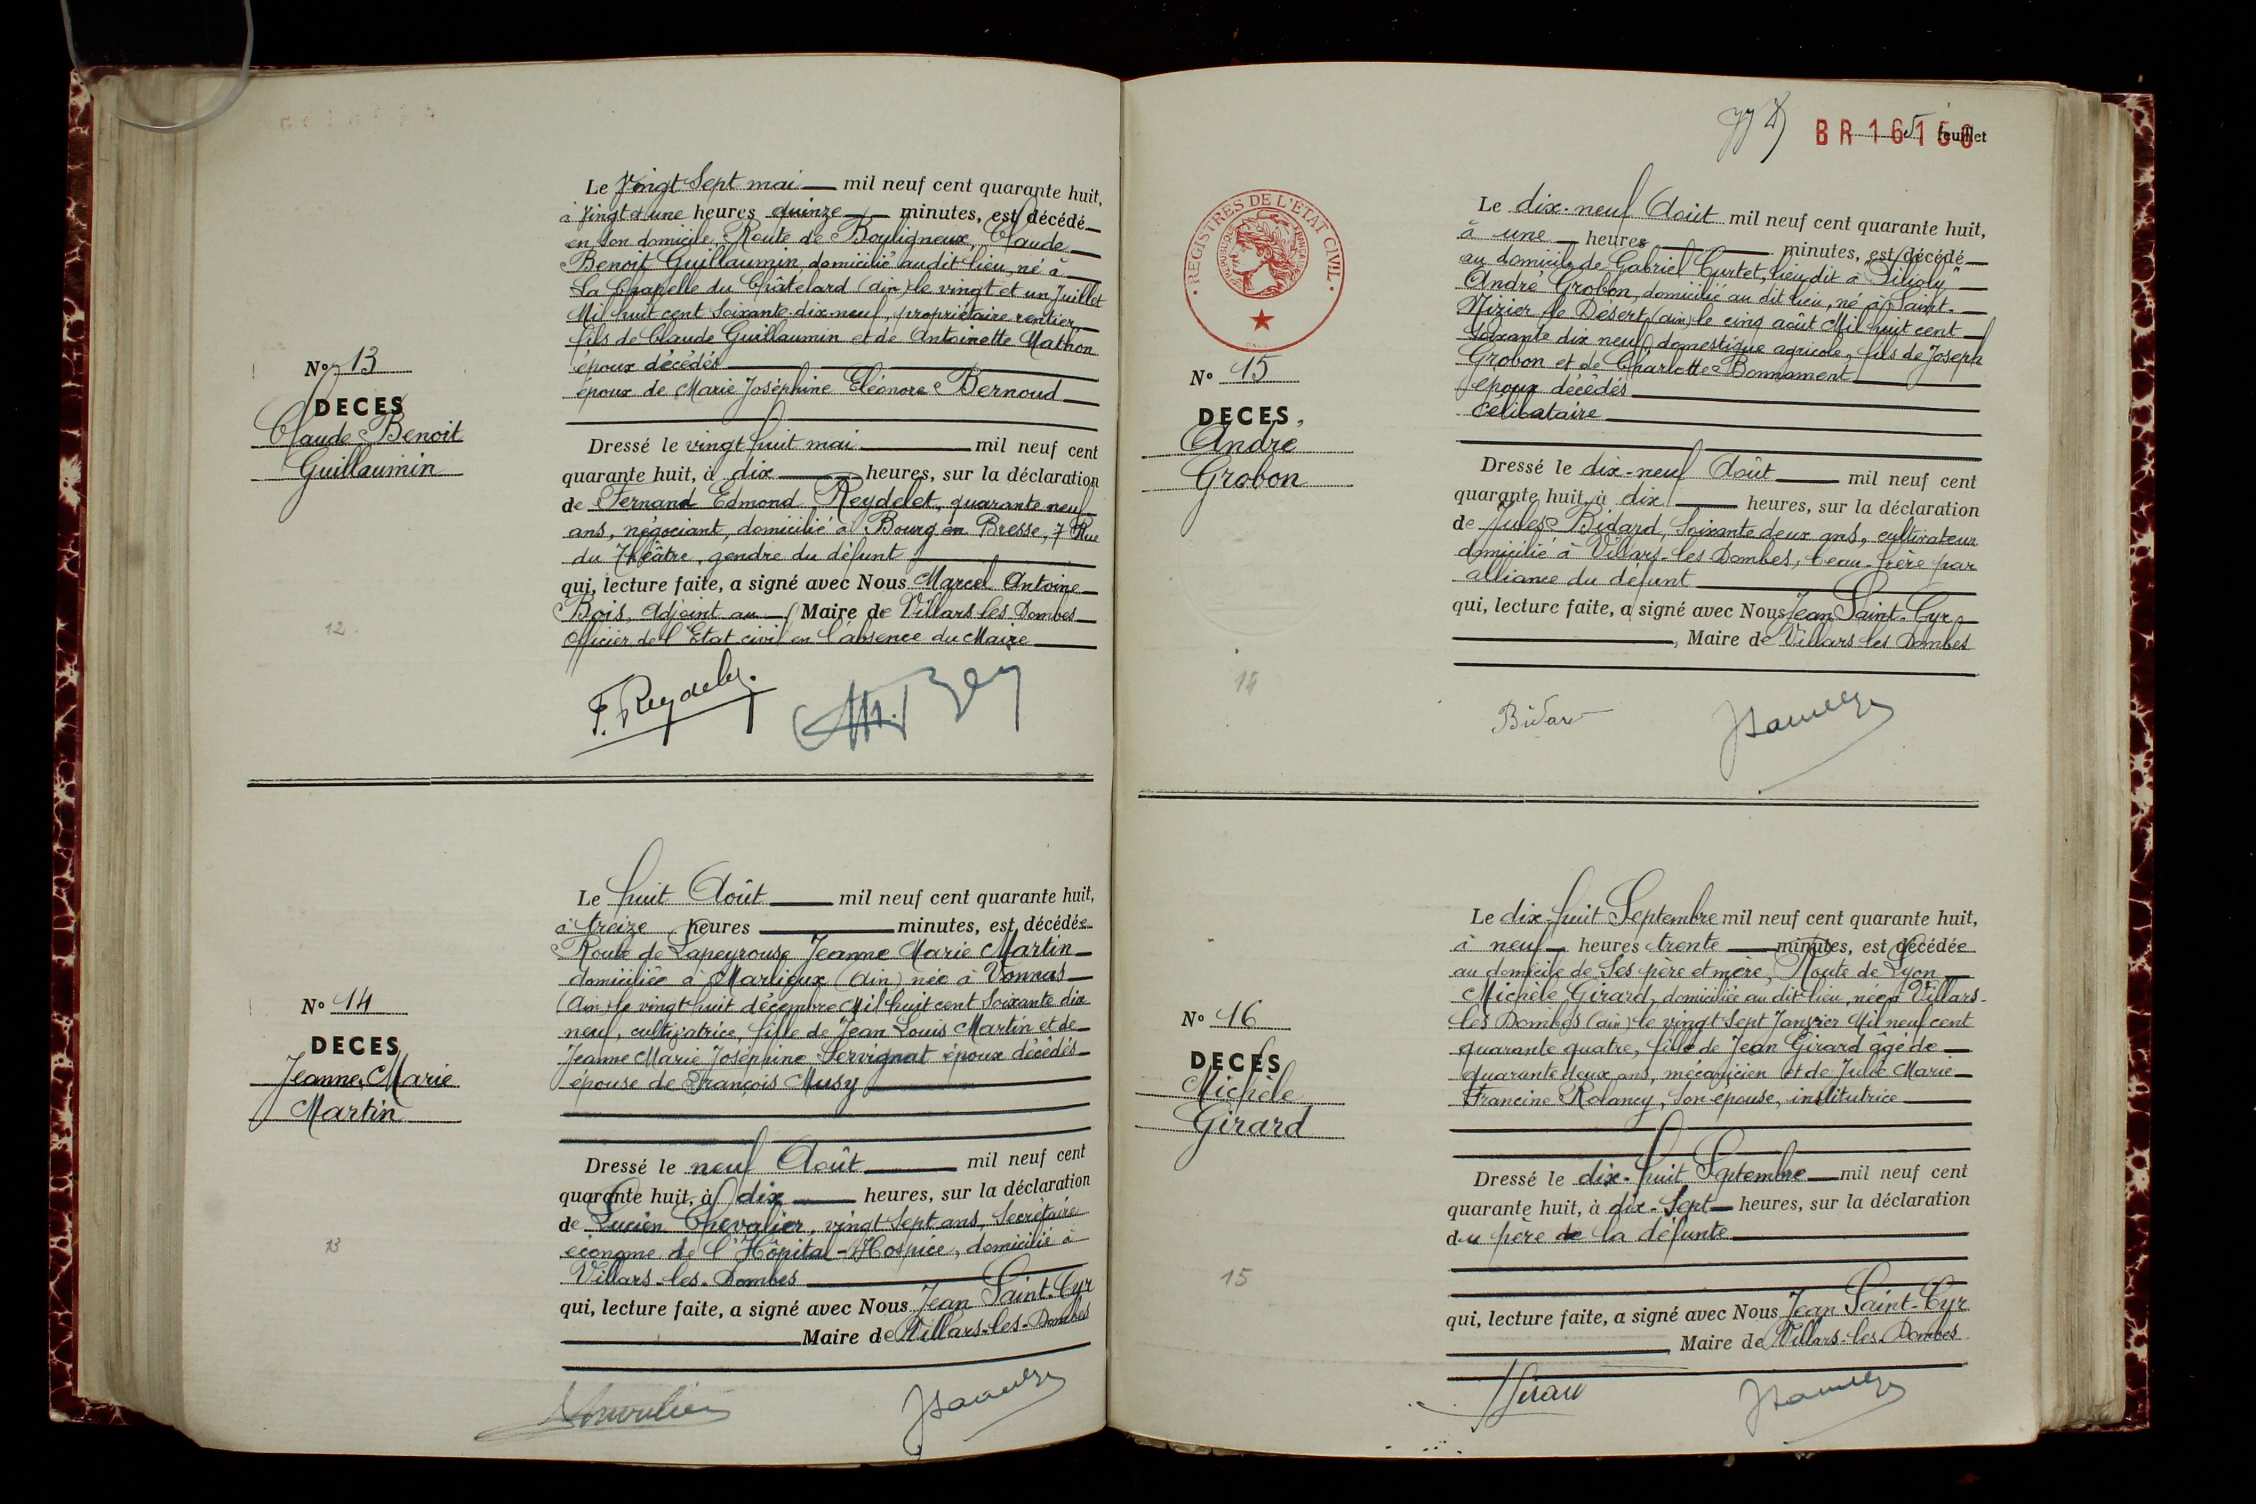 Le Vingt Sept mai mil neuf cent quarante huit,
à Vingt et une heures quinze minutes, est décédé
en son domicile, Route de Bouligneux, Claude
Benoit Guillaumin domicilié audit lieu, né à
La Chapelle du Châtelard (Ain) le vingt et un Juillet
Mil huit cent soixante-dix-neuf, propriétaire rentier,
fils de Claude Guillaumin et de Antoinette Mathon
époux décédés
époux de Marie Joséphine Eléonore Bernoud
N° 13
DECES
Claude Benoit
Guillaumin
Dressé le vingt huit mai mil neuf cent
quarante huit, à dix heures, sur la déclaration
de Fernand Edmond Reydelet, quarante neuf
ans, négociant, domicilié à Bourg en Bresse, 7 Rue
du Théâtre, gendre du défunt
qui, lecture faite, a signé avec Nous Marcel Antoine
Bois, Adjoint au Maire de Villars les Dombes
Officier de l'Etat civil en l'absence du Maire
12.
F. Reydelet
Le huit Août mil neuf cent quarante huit,
à treize heures minutes, est décédée
Route de Lapeyrouse Jeanne Marie Martin
domiciliée à Marlieux (Ain) née à Vonnas
(Ain) le vingt huit décembre Mil huit cent soixante dix
neuf, cultivatrice, fille de Jean Louis Martin et de
Jeanne Marie Joséphine Servignat époux décédés
épouse de François Musy
N° 14
DECES
Jeanne Marie
Martin
Dressé le neuf Août mil neuf cent
quarante huit, à dix heures, sur la déclaration
de Lucien Chevalier, vingt sept ans, Secrétaire
économe de l'Hôpital-Hospice, domicilié à
Villars-les-Dombes
qui, lecture faite, a signé avec Nous Jean Saint-Cyr
Maire de Villars-les-Dombes
13
BR 16150
5 feuillet
REGISTRES DE L'ETAT CIVIL
Le dix-neuf Août mil neuf cent quarante huit,
à une heures minutes, est décédé
au domicile de Gabriel Curtet, lieu dit à
André Grobon, domicilié au dit lieu, né à Saint-
Nizier le Désert (Ain) le cinq août Mil huit cent
soixante dix neuf, domestique agricole, fils de Joseph
Grobon et de Charlotte Bonnament
époux décédés
célibataire
N° 15
DECES
André
Grobon
Dressé le dix-neuf Août mil neuf cent
quarante huit, à dix heures, sur la déclaration
de Jules Bidard, soixante deux ans, cultivateur
domicilié à Villars-les Dombes, beau-frère par
alliance du défunt
qui, lecture faite, a signé avec Nous Jean Saint-Cyr
, Maire de Villars les Dombes
14
Bidard
Le dix-huit Septembre mil neuf cent quarante huit,
à neuf heures trente minutes, est décédée
au domicile de ses père et mère, Route de Lyon
Michèle Girard, domiciliée au dit lieu, née à Villars-
les Dombes (Ain) le vingt sept Janvier Mil neuf cent
quarante quatre, fille de Jean Girard âgé de
quarante deux ans, mécanicien et de Julie Marie
Francine Rolancy, son épouse, institutrice
N° 16
DECES
Michèle
Girard
Dressé le dix-huit Septembre mil neuf cent
quarante huit, à dix-sept heures, sur la déclaration
du père de la défunte
qui, lecture faite, a signé avec Nous Jean Saint-Cyr
, Maire de Villars-les-Dombes
15
Girard